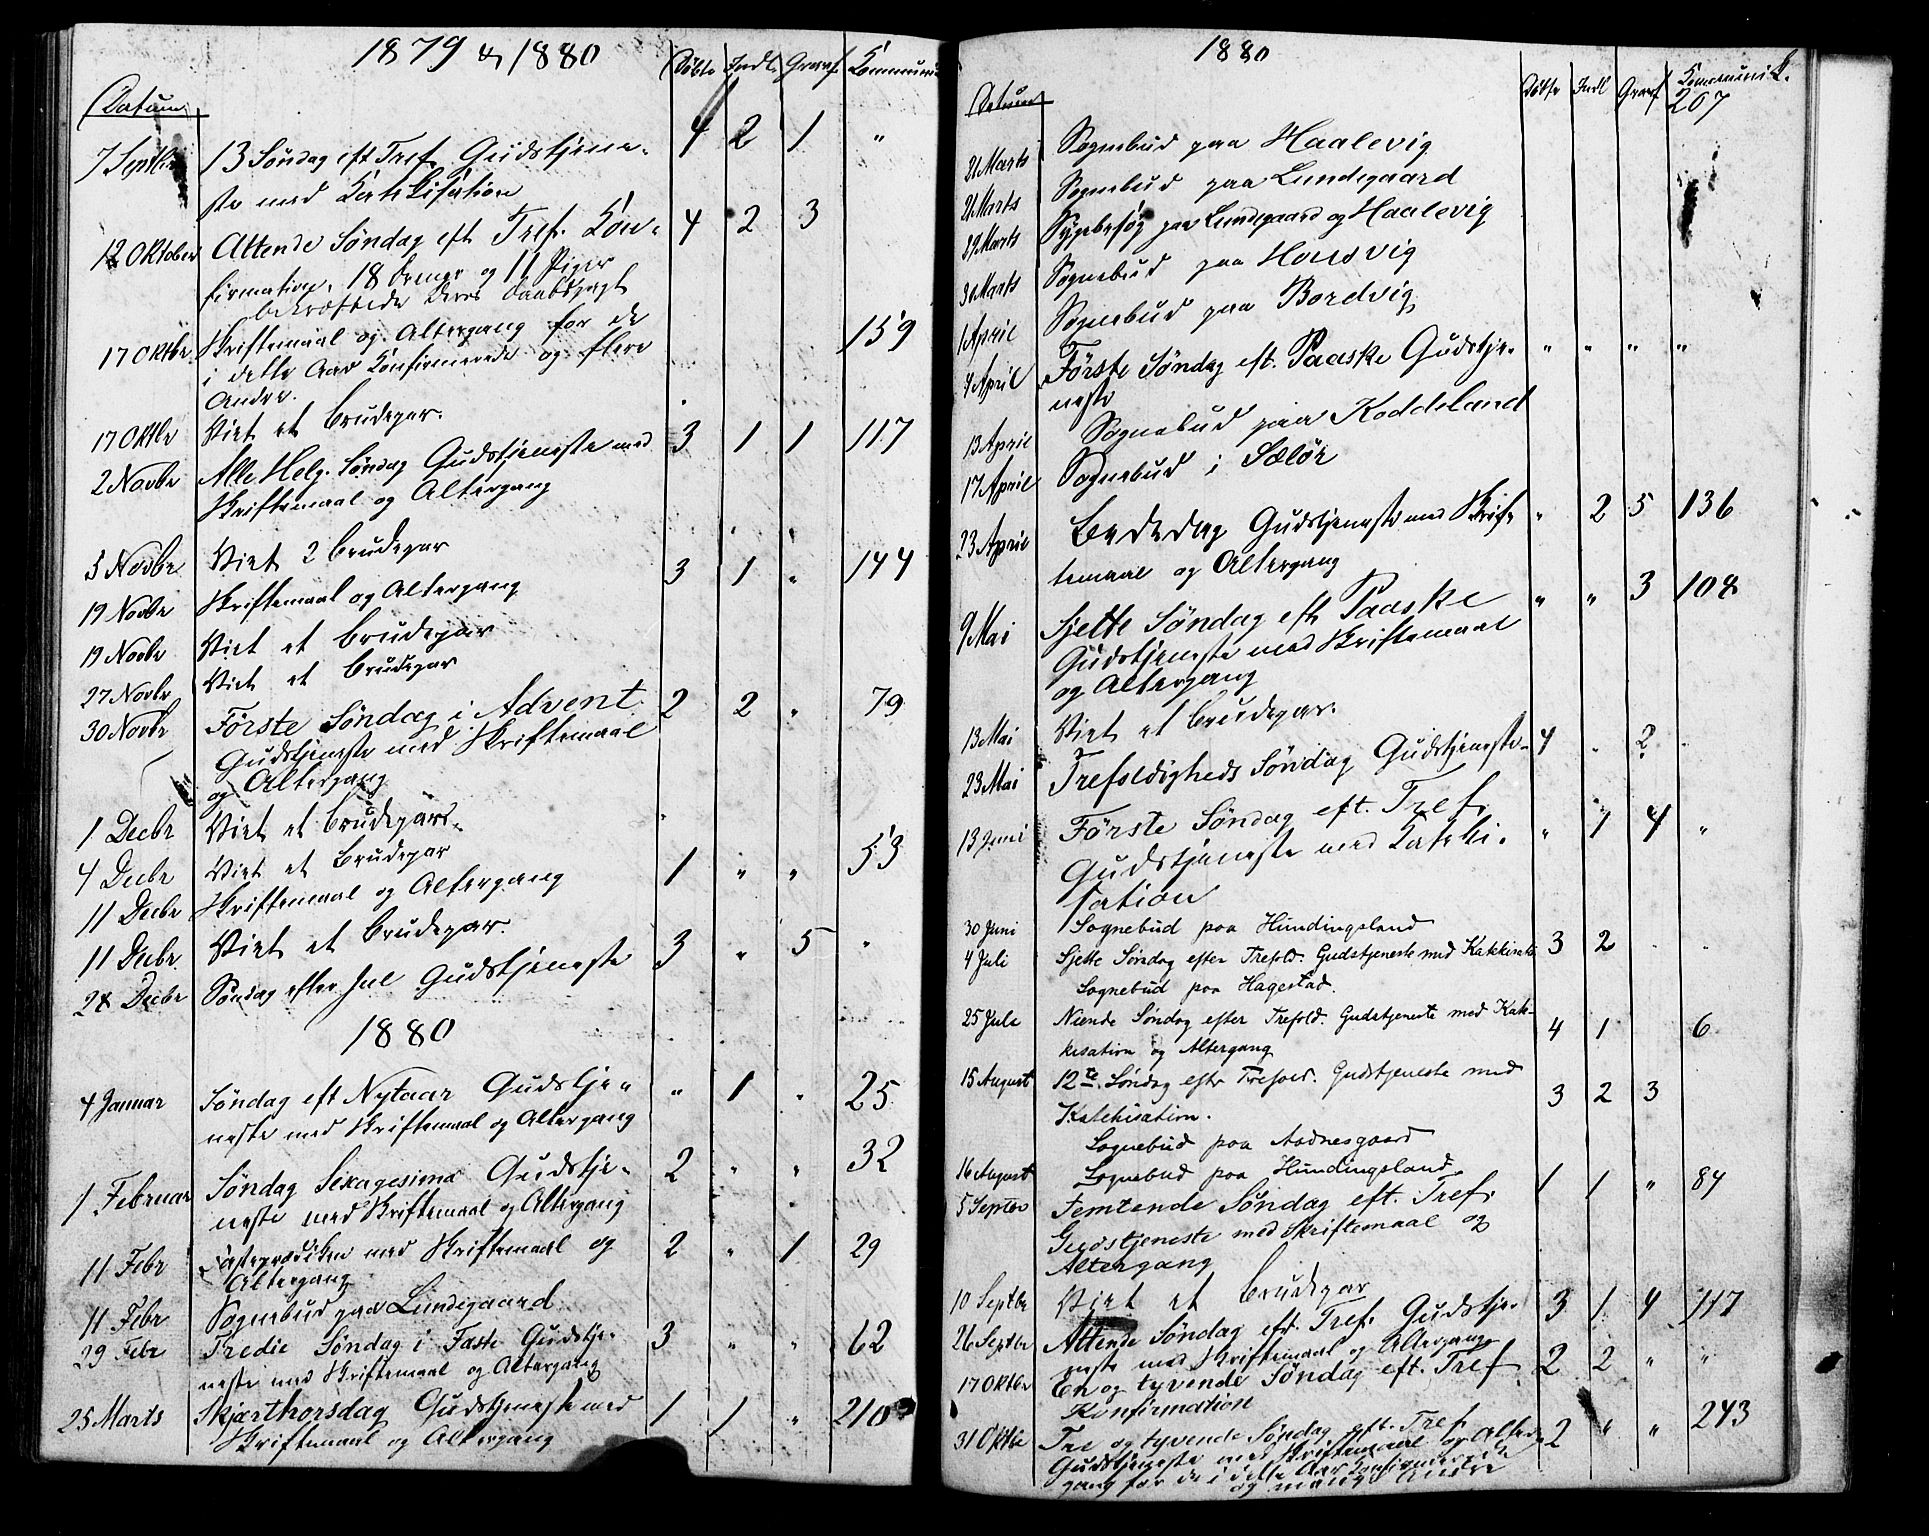 1879 & 1880
Datum Döbte Indl. Gravf. Kommunic
7 Septbr 13 Søndag eft Tref. Gudstjene- 4 2 1 "
ste med Katekisation
12 Oktober Attende Søndag eft Tref. Kon- 4 2 3
firmation, 18 Drenge og 11 Piger
bekræftede deres Daabspagt
17 Oktbr Skriftemaal og Altergang for de 159
i dette Aar Konfirmerede og flere
Andre.
17 Oktbr Viet et Brudepar.
2 Novbr Alle Helg. Søndag Gudstjeneste med 3 1 1 117
Skriftemaal og Altergang
5 Novbr Viet 2 Brudepar
19 Novbr Skriftemaal og Altergang 3 1 " 144
19 Novbr Viet et Brudepar
27 Novbr Viet et Brudepar
30 Novbr Første Søndag i Advent 2 2 " 79
Gudstjeneste med Skriftemaal
og Altergang
1 Decbr Viet et Brudepar.
4 Decbr Viet et Brudepar
11 Decbr Skriftemaal og Altergang 1 " " 53
11 Decbr Viet et Brudepar.
28 Decbr Søndag efter Jul Gudstjeneste 3 " 5 "
1880
4 Januar Søndag eft Nytaar Gudstje- " 1 " 25
neste med Skriftemaal og Altergang
1 Februar Søndag Sexagesima Gudstje- 2 " " 32
neste med Skriftemaal og Altergang
11 Febr Fasteprædiken med Skriftemaal og 2 " 1 29
Altergang
11 Febr Sognebud paa Lundegaard
29 Febr Tredie Søndag i Faste Gudstje- 3 " " 62
neste med Skriftemaal og Altergang
25 Marts Skjærthorsdag Gudstjeneste med 1 1 " 210
Skriftemaal og Altergang
1880
Datum Döbte Indl Gravf Kommunik.
207
21 Marts Sognebud paa Haalevig
21 Marts Sognebud paa Lundegaard
29 Marts Sygebesøg paa Lundegaard og Haalevig
31 Marts Sognebud paa Housvig
1 April Sognebud paa Bordvig
4 April Første Søndag eft. Paaske Gudstje- " " " "
neste
13 April Sognebud paa Koddeland
17 April Sognebud i Sælör
23 April Bededag Gudstjeneste med Skrif- " 2 5 136
temaal og Altergang
9 Mai Sjette Søndag eft Paaske " " 3 108
Gudstjeneste med Skriftemaal
og Altergang
13 Mai Viet et Brudepar.
23 Mai Trefoldigheds Søndag Gudstjeneste 4 " 2 "
13 Juni Første Søndag eft. Tref. " 1 4 "
Gudstjeneste med Kateki-
sation
30 Juni Sognebud paa Hundingsland
4 Juli Sjette Søndag efter Trefold. Gudstjeneste med Katekisati 3 2 . .
Sognebud paa Hagestad.
25 Juli Niende Søndag efter Trefold. Gudstjeneste med Kate- 4 1 6
kisation og Altergang
15 August 12te Søndag efter Trefold. Gudstjeneste med 3 2 3
Katekisation.
Sognebud paa Aadnesgaard
16 August Sognebud paa Hundingsland
5 Septbr Femtende Søndag eft. Tref. 1 1 " 84
Gudstjeneste med Skriftemaal og
Altergang
10 Septbr Viet et Brudepar
26 Septbr Attende Søndag eft. Tref. Gudstje- 3 1 4 117
neste med Skriftemaal og Altergang
17 Oktbr En og tyvende Søndag eft. Tref 2 2 " "
Konfirmation
31 Oktbr Tre og tyvende Søndag eft. Tref 2 " " 243
Gudstjeneste med Skriftemaal og Alter-
gang for de i dette Aar Konfirmerede
og mange Andre